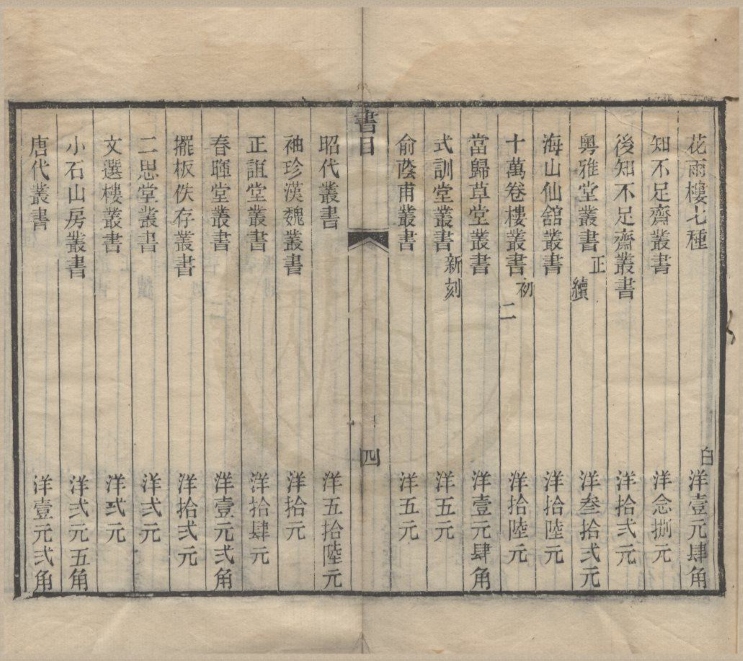 花雨樓七種 白 洋壹元肆角
知不足齋叢書 洋念捌元
後知不足齋叢書 洋拾弍元
粵雅堂叢書 正續 洋叄拾弍元
海山仙舘叢書 洋拾陸元
十萬卷樓叢書 初二 洋拾陸元
當歸草堂叢書 洋壹元肆角
式訓堂叢書 新刻 洋五元
俞蔭甫叢書 洋五元
書目 四
昭代叢書 洋五拾陸元
袖珍漢魏叢書 洋拾元
正誼堂叢書 洋拾肆元
春暉堂叢書 洋壹元弍角
擺板佚存叢書 洋拾弍元
二思堂叢書 洋弍元
文選樓叢書 洋弍元
小石山房叢書 洋弍元五角
唐代叢書 洋壹元弍角